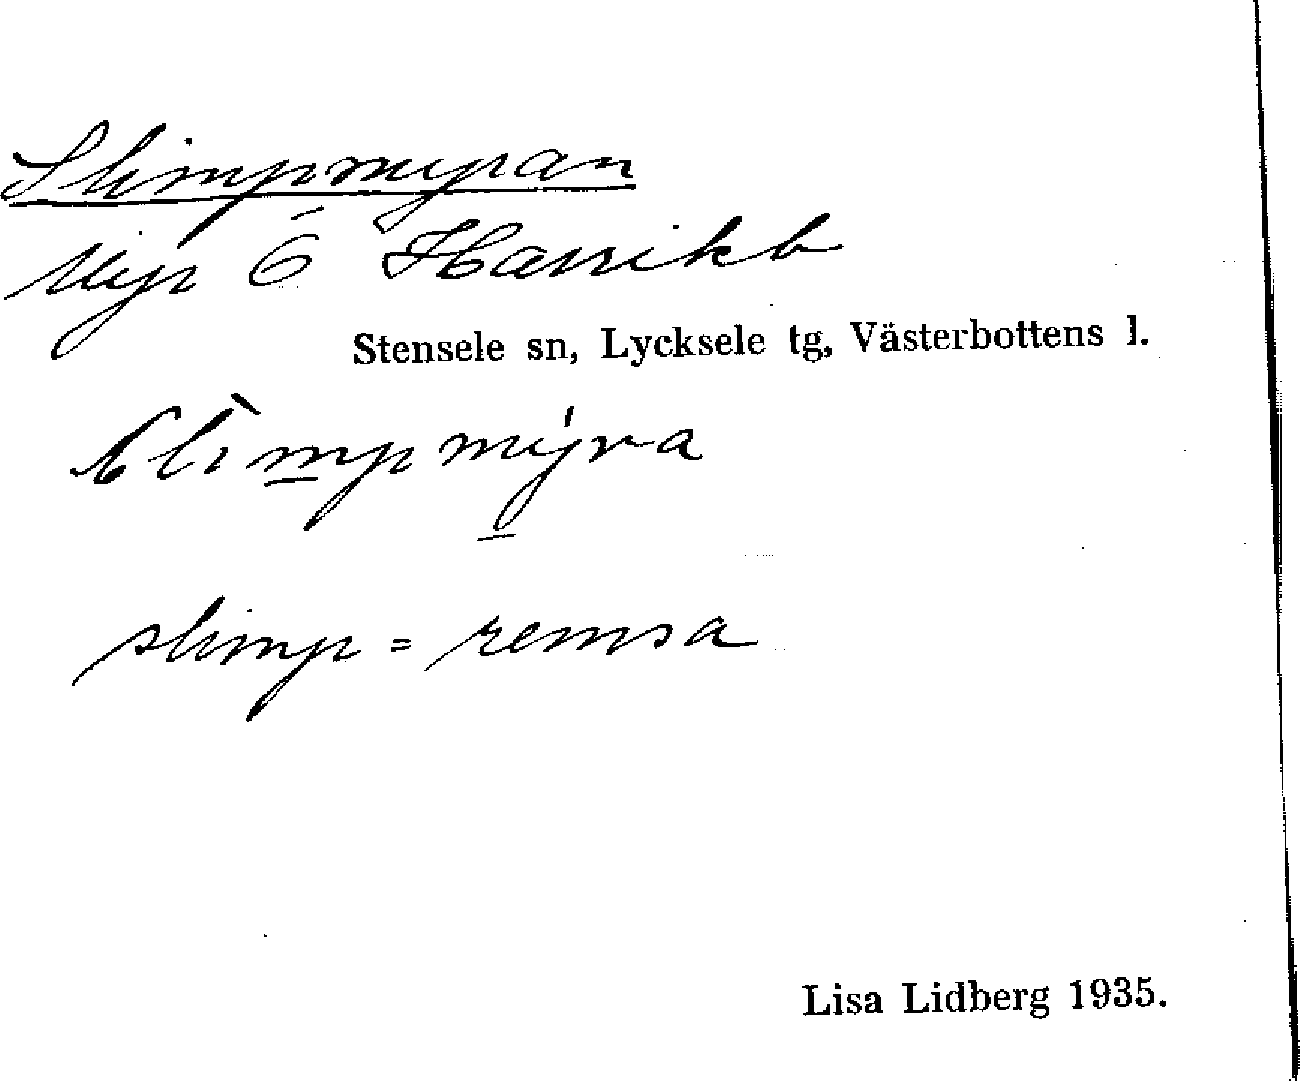 Slimpmyran
Myr Ö Harrikb
Stensele sn, Lycksele tg, Västerbottens l.
slìmpmýra
slimp = remsa
Lisa Lidberg 1935.